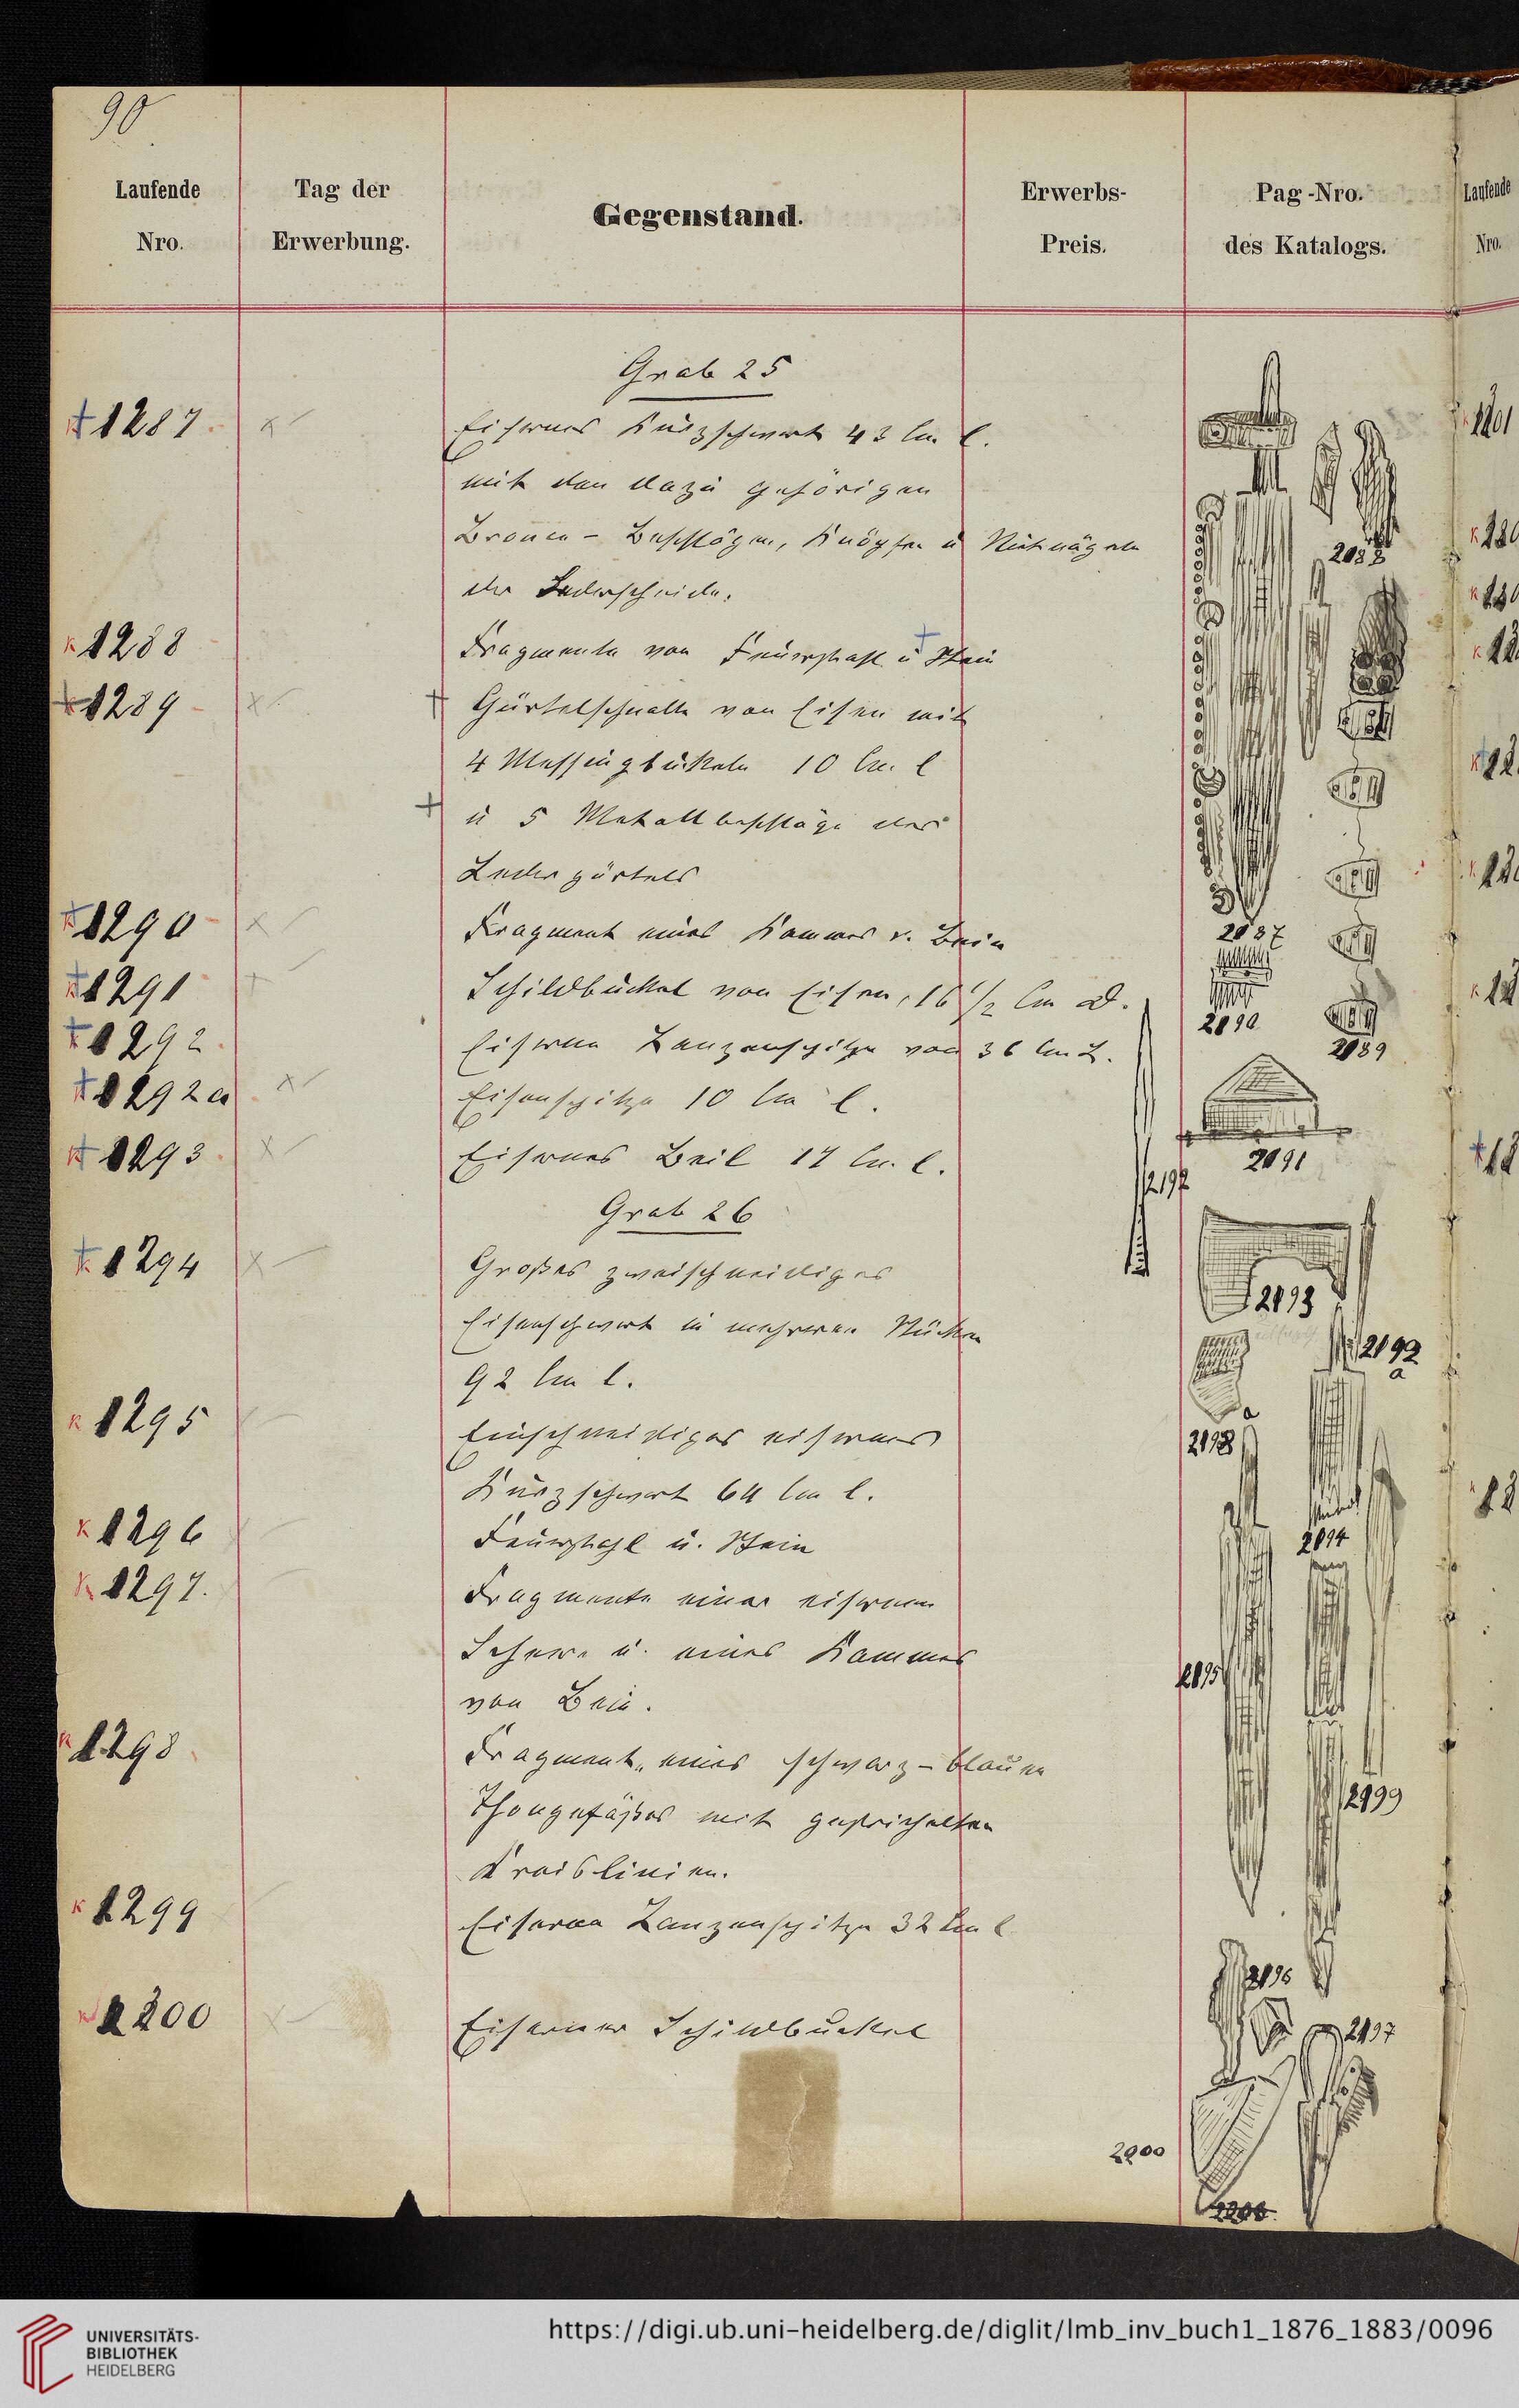 90
Laufende Nro.
Tag der Erwerbung.
Gegenstand.
Erwerbs-Preis.
Pag-Nro. des Katalogs.
Laufende Nro.
Grab 25
1287 Eisernes Kurzschwert 43 Cm l.
mit den dazu gehörigen
Bronce-Beschlägen, Knöpfen u Nietnägeln
der Lederscheide.
1288 Fragmente von Feuerstahl u Stein
1289 Gürtelschnalle von Eisen mit
4 Messingbuckeln 10 Cm. l
u 5 Metallbeschläge des
Ledergürtels
1290 Fragment eines Kammes v. Bein
1291 Schildbuckel von Eisen, 16 1/2 Cm D.
1292 Eiserne Lanzenspitze von 36 Cm L.
1292a Eisenspitze 10 Cm l.
1293 Eisernes Beil 17 Cm. l.
Grab 26
1294 Großes zweischneidiges
Eisenschwert in mehreren Stücken
92 Cm l.
1295 Einschneidiges eisernes
Kurzschwert 64 Cm l.
1296 Feuerstahl u. Stein
1297. Fragmente einer eisernen
Schere u. eines Kammes
von Bein.
1298 Fragment eines schwarz-blauen
Thongefäßes mit gestrichelten
Kreislinien.
1299 Eiserne Lanzenspitze 32 Cm l
Eiserner Schildbuckel
2088
2087
2090
2089
2091
2093
2192
a
2094
2199
2196
2197
2200
UNIVERSITÄTS-
BIBLIOTHEK
HEIDELBERG
https://digi.ub.uni-heidelberg.de/diglit/lmb_inv_buch1_1876_1883/0096